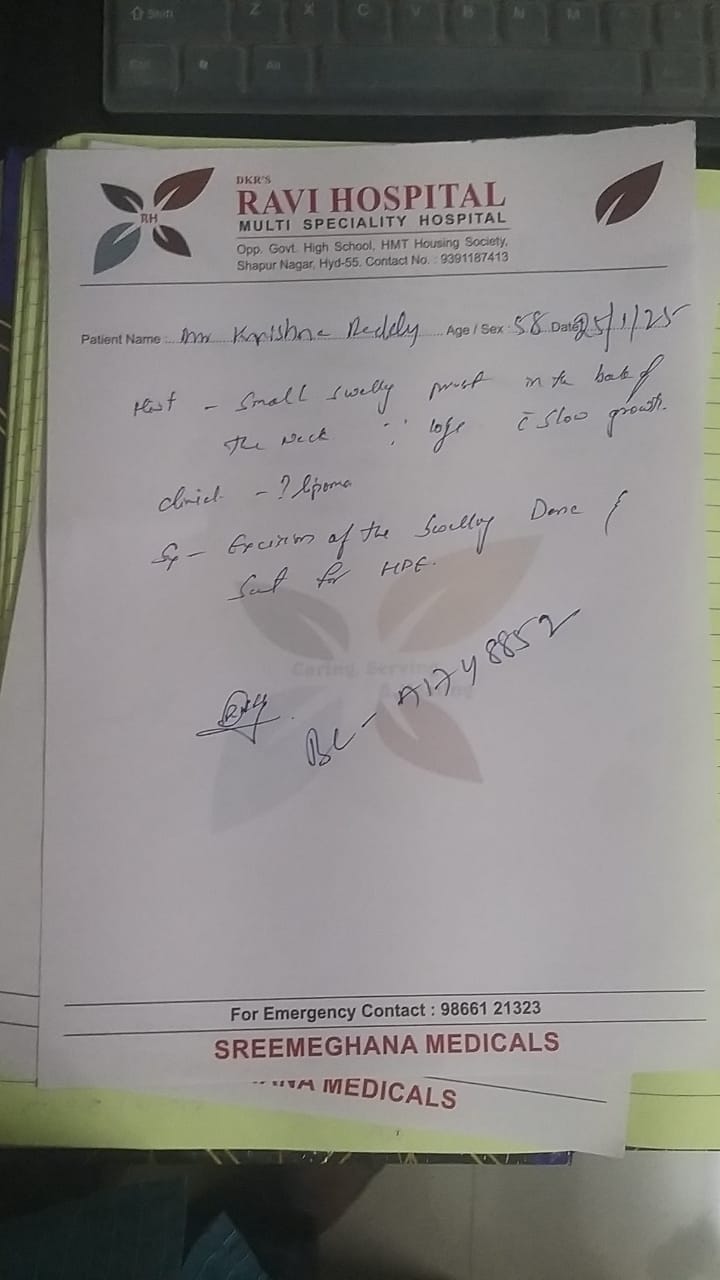 Shift Z X C V B N M
Ctrl Alt
RH
DKR'S
RAVI HOSPITAL
MULTI SPECIALITY HOSPITAL
Opp. Govt. High School, HMT Housing Society,
Shapur Nagar, Hyd-55. Contact No. : 9391187413
Patient Name : Mr Krishna Reddy Age / Sex : 58 Date 25/1/25
Hist - Small swelly in the back of
the neck c̄ slow growth.
clinical - ? lipoma
Excision of the swelling Done &
Sent for HPE.
Caring, Serving
BC - A1748852
For Emergency Contact : 98661 21323
SREEMEGHANA MEDICALS
ANA MEDICALS